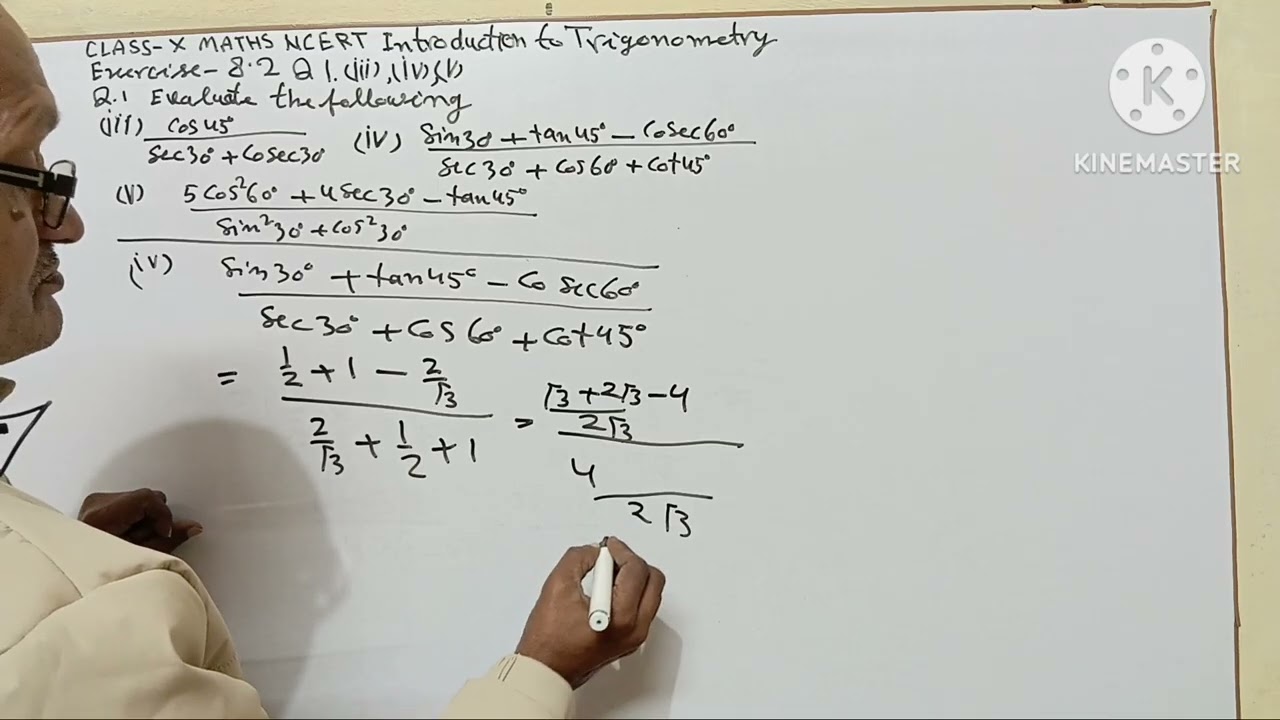 CLASS-X MATHS NCERT Introduction to Trigonometry
Exercise-8.2 Q 1.(iii),(iv),(v)
Q.1 Evaluate the following
(iii) cos45° / sec30° + cosec30 (iv) sin30 + tan45° - cosec60° / sec30° + cos60° + cot45°
(v) 5cos²60° + 4sec30° - tan45° / sin²30° + cos²30°
(iv) sin30° + tan45° - cosec60°
sec30° + cos60° + cot45°
= 1/2 + 1 - 2/√3 = √3 + 2√3 - 4 / 2√3
2/√3 + 1/2 + 1 4 / 2√3
K
KINEMASTER